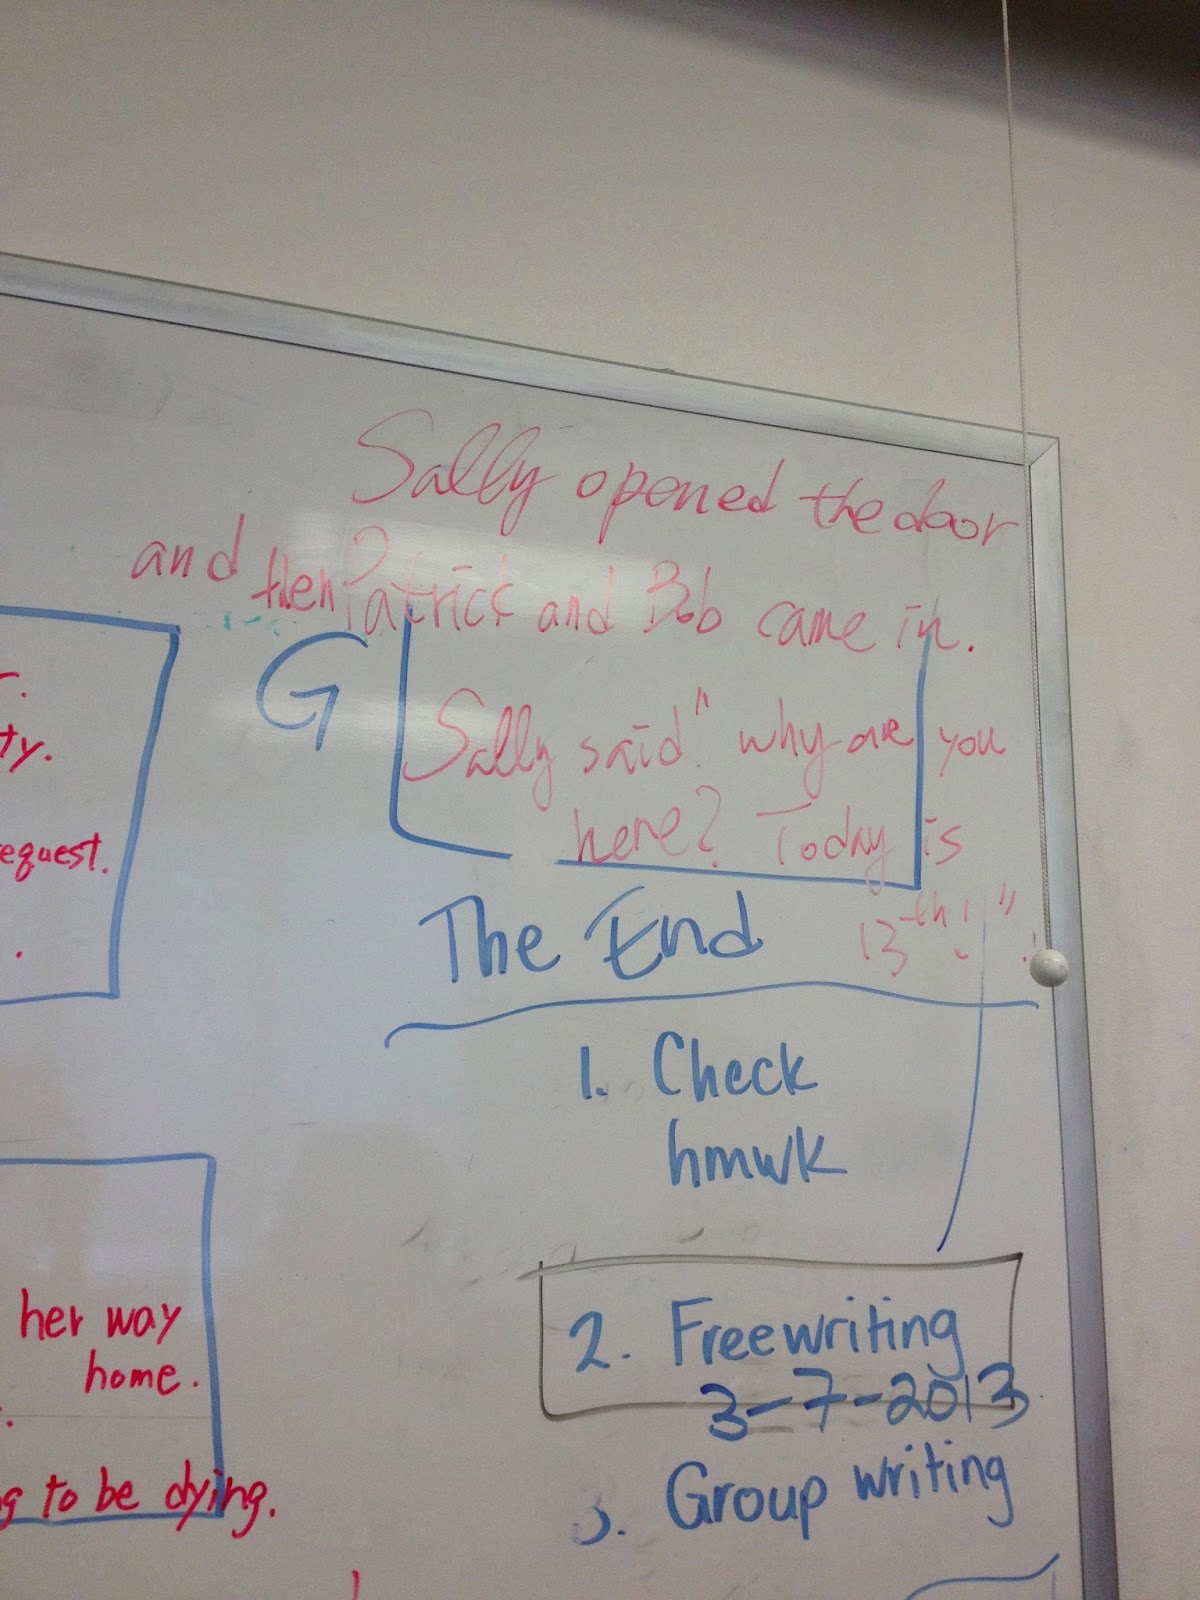 Sally opened the door
and then Patrick and Bob came in.
G
Sally said." why are you
here? Today is
13th!"
The End
ty.
request.
1. Check
hmwk
her way
home.
2. Freewriting
3-7-2013
to be dying.
3. Group writing